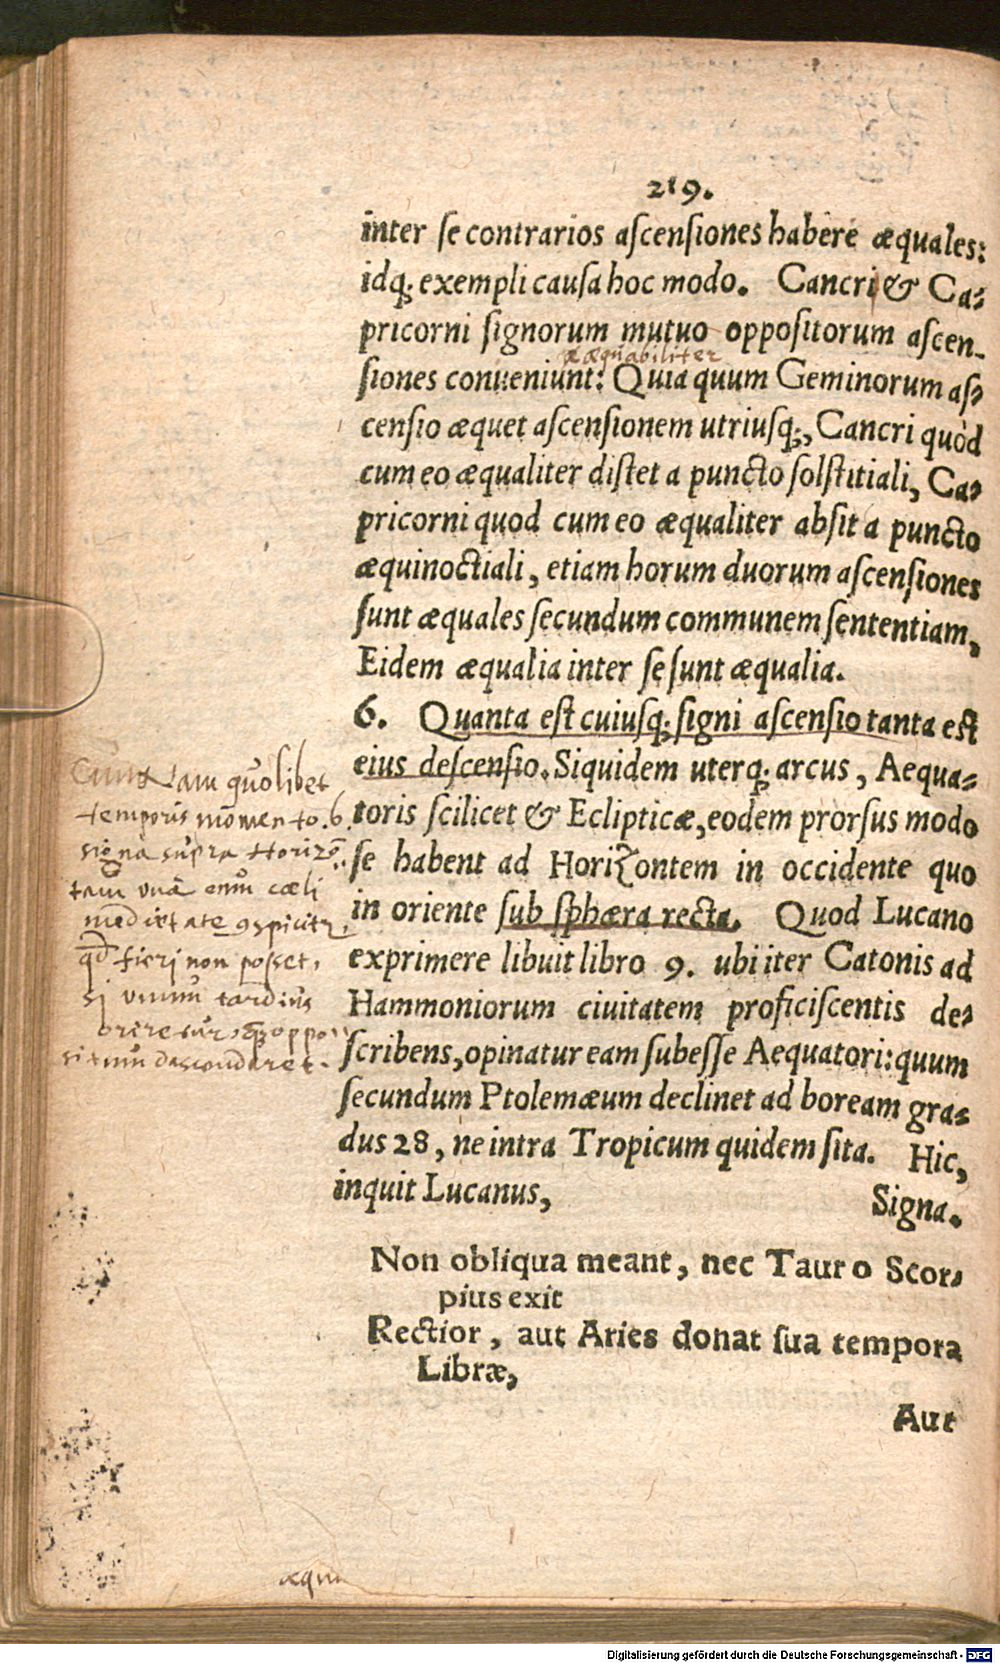 219.
inter ſe contrarios aſcenſiones habere æquales:
idq; exempli cauſa hoc modo. Cancri & Ca-
pricorni ſignorum mutuo oppoſitorum aſcen-
æquabiliter
ſiones conueniunt: Quia quum Geminorum aſ-
cenſio æquet aſcenſionem utriuſq;, Cancri quòd
cum eo æqualiter diſtet a puncto ſolſtitiali, Ca-
pricorni quod cum eo æqualiter abſit a puncto
æquinoctiali, etiam horum duorum aſcenſiones
ſunt æquales ſecundum communem ſententiam,
Eidem æqualia inter ſe ſunt æqualia.
6. Quanta eſt cuiuſq; ſigni aſcenſio tanta eſt
eius deſcenſio. Siquidem uterq; arcus, Aequa-
toris ſcilicet & Eclipticæ, eodem prorſus modo
ſe habent ad Horizontem in occidente quo
in oriente ſub ſphæra recta. Quod Lucano
exprimere libuit libro 9. ubi iter Catonis ad
Hammoniorum ciuitatem proficiſcentis de-
ſcribens, opinatur eam ſubeſſe Aequatori: quum
ſecundum Ptolemæum declinet ad boream gra-
dus 28, ne intra Tropicum quidem ſita. Hic,
inquit Lucanus, Signa.
Non obliqua meant, nec Tauro Scor-
pius exit
Rectior, aut Aries donat ſua tempora
Libræ,
Aut
quolibet
temporis momento .6.
signa supra Horizõ
tam unã enim cæli
medietate
qd fieri non posset,
si unum tardius
oriretur oppo
situm descenderet.
æqui
Digitalisierung gefördert durch die Deutsche Forschungsgemeinschaft - DFG